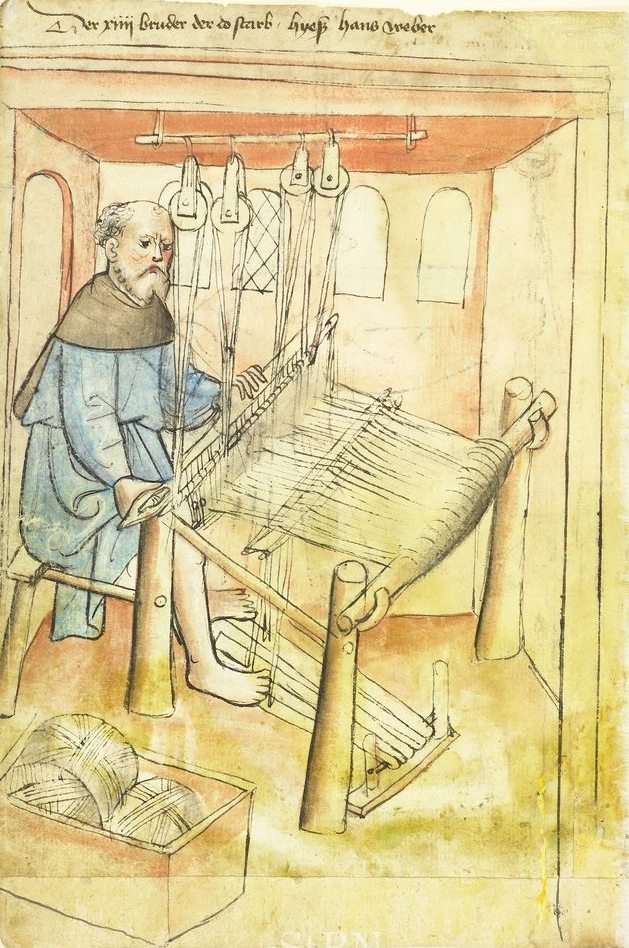 Der xiiii bruder der do starb · hyeß hans weber